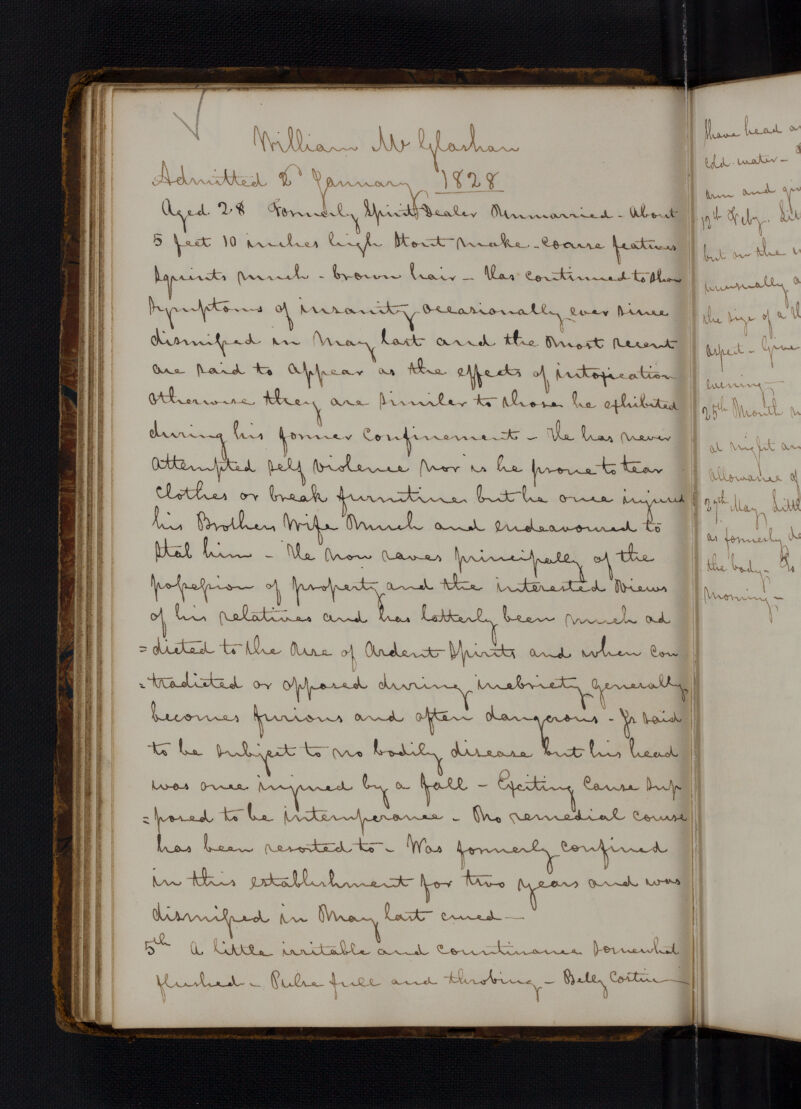 William McGlashan
Admitted 2d January 1828
Aged 28 Formerly Spirit Dealer Unmarried - About
5 feet 10 inches high Stout make - Coarse features
Squints much - brown hair - Has continued to show
Symptoms of insanity occasionally ever since
dismissed in May last and the most recent
are said to appear as the effects of intoxication
otherwise they are similar to those he exhibited
during his former Confinement - He has never
attempted self violence nor is he prone to tear
Clothes or break furniture but he once injured
his Brothers Wife Much and endeavoured to
Stab him - He now raves principally of the
possession of property and the interested views
of his relatives and has latterly been much ad
=dicted to the Use of Ardent Spirits and when Con
=tradicted or opposed during inebriety generally
becomes furious and often dangerous - Is said
to be subject to no bodily disease but his head
was once injured by a fall - Exciting Cause Sup
=posed to be intemperance - No remedial course
has been resorted to - Was formerly confined
in this establishment for two years and was
dismissed in May last cured -
5th A little irritable and Countenance Somewhat
flushed - Pulse full and throbing - Belly Costive -
Shave head
Cold water -
and
12th Feby.
but on the
unusually
the size of a
aspect - Give
Evening -
25th Month
at night
allowance of
27th May Little
as formerly
the body -
Morning -